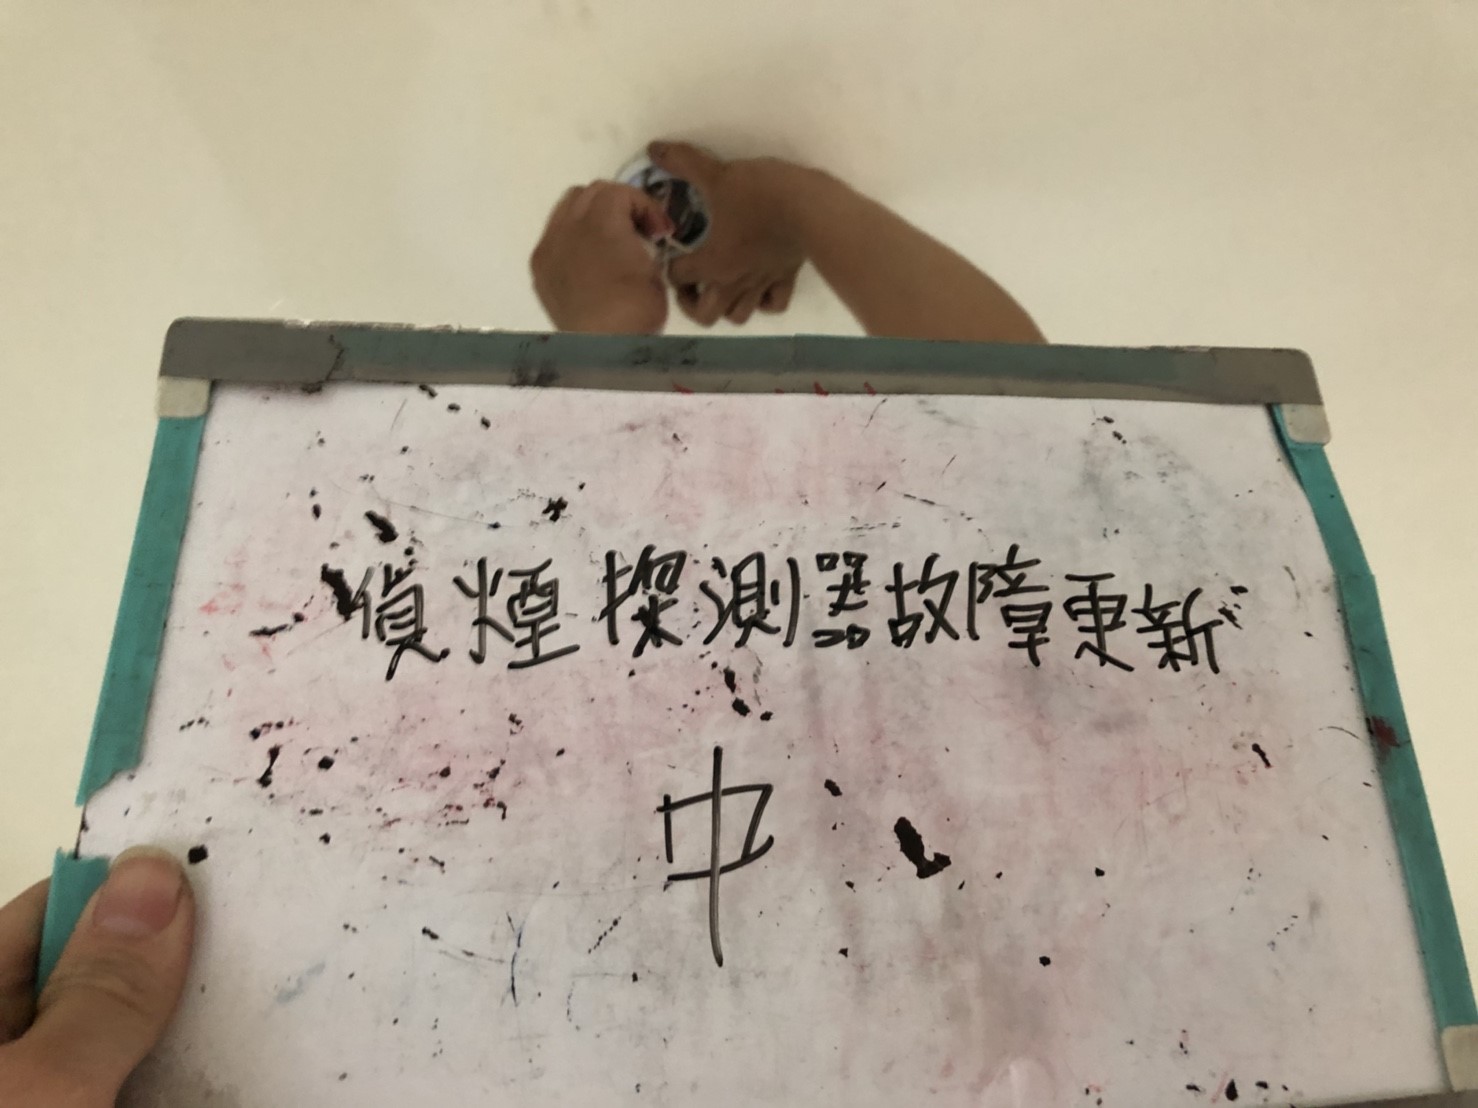 偵煙探測器故障更新
中